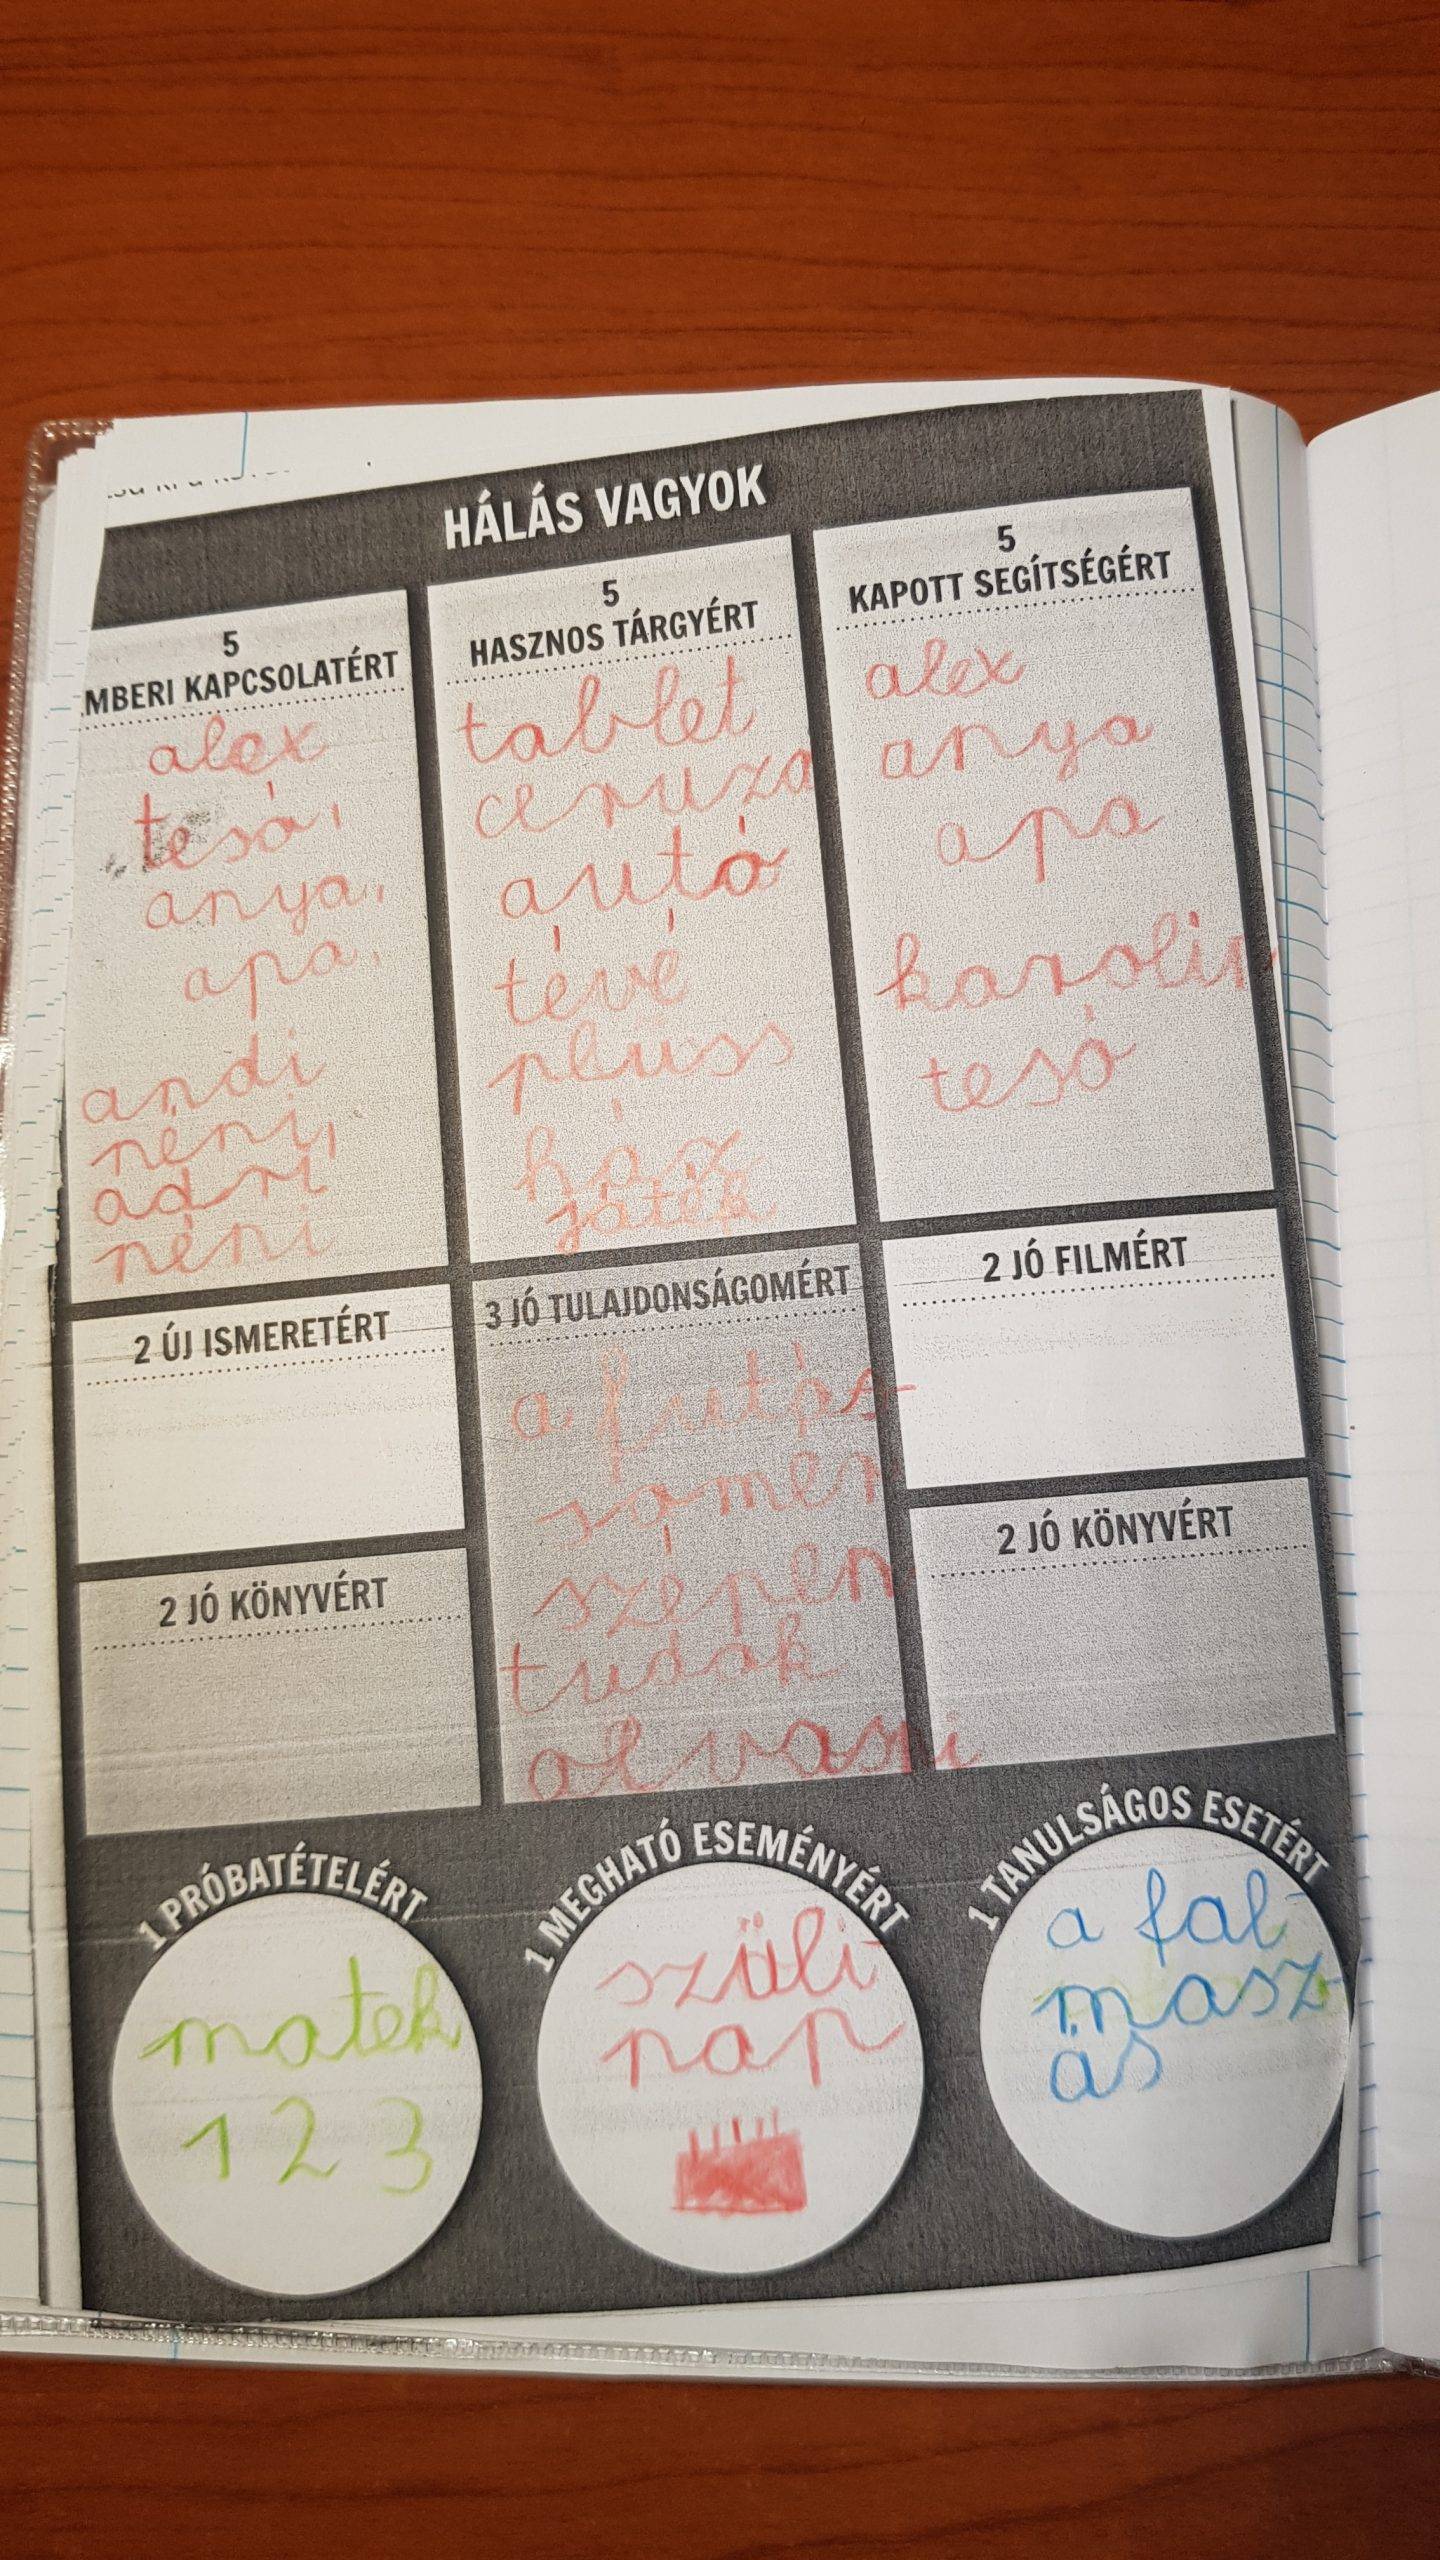 HÁLÁS VAGYOK
5
MBERI KAPCSOLATÉRT
alex
tesó,
anya,
apa,
andi
néni,
adri
néni
5
HASZNOS TÁRGYÉRT
tablet
ceruza
autó
tévé
plüss
ház
játék
5
KAPOTT SEGÍTSÉGÉRT
alex
anya
apa
karolin
tesó
2 ÚJ ISMERETÉRT
2 JÓ KÖNYVÉRT
3 JÓ TULAJDONSÁGOMÉRT
a futás-
somér
szépen
tudok
olvasni
2 JÓ FILMÉRT
2 JÓ KÖNYVÉRT
1 PRÓBATÉTELÉRT
matek
1 2 3
1 MEGHATÓ ESEMÉNYÉRT
szüli-
nap
1 TANULSÁGOS ESETÉRT
a fal-
mász-
ás